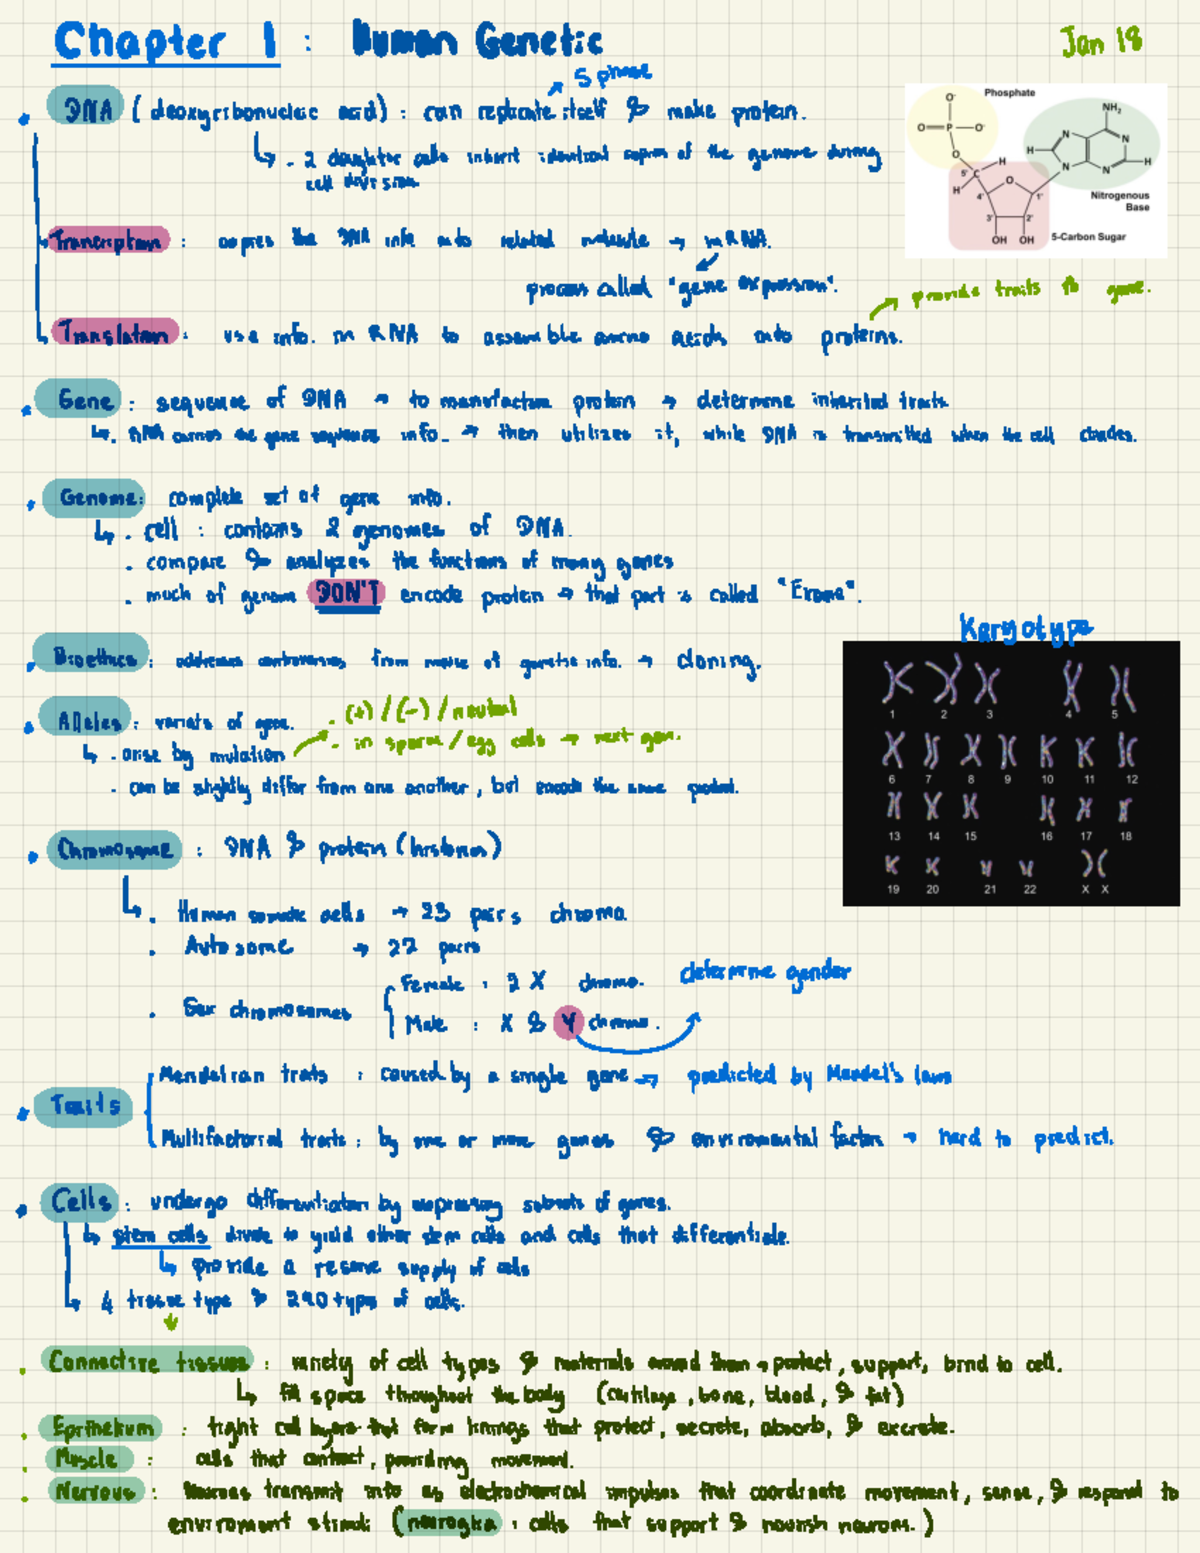 Chapter 1 : Human Genetic
Jan 18
S phase
DNA (deoxyribonucleic acid) : can replicate itself & make protein.
2 daughter cells inherit identical copies of the genome during
cell division
Phosphate
O⁻
O=P—O⁻
O
NH₂
N N
H N N H
5' C H
H
O
4' 1'
3' 2'
OH OH
Nitrogenous
Base
5-Carbon Sugar
Trancription : copies the DNA info into related molecule → mRNA.
process called "gene expression".
provide traits to gene.
Translation : use info. in RNA to assemble amino acids into proteins.
Gene : sequence of DNA → to manufacture protein → determine inherited traits
RNA carries the gene sequence info. → then utilizes it, while DNA is transmitted when the cell divides.
Genome : complete set of gene info.
cell : contains 2 genomes of DNA.
compare & analyzes the functions of many genes
much of genome DON'T encode protein → that part is called "Exome".
Karyotype
Bioethics : addresses controversies from misuse of genetic info. → cloning.
1 2 3 4 5
6 7 8 9 10 11 12
13 14 15 16 17 18
19 20 21 22 X X
Alleles : variats of gene.
(+) / (-) / neutral
in sperm / egg cells → next gen.
arise by mutation
can be slightly differ from one another, but encode the same product.
Chromosome : DNA & protein (histones)
Human somatic cells → 23 pairs chromo.
Autosome → 22 pairs
Sex chromosomes
Female : 2 X chromo.
Male : X & Y chromo.
determine gender
Traits
Mendelian traits : caused by a single gene → predicted by Mendel's laws
Multifactorial traits : by one or more genes & enviromental factors → hard to predict.
Cells : undergo differentiation by expressing subsets of genes.
stem cells divide to yield other stem cells and cells that differentiate.
provide a reserve supply of cells
4 tissue type & 290 types of cells.
Connective tissues : variety of cell types & materials around them → protect, support, bind to cell.
fill space throughout the body (cartilage, bone, blood, & fat)
Epithelium : tight cell layers that form linings that protect, secrete, absorb, & excrete.
Muscle : cells that contract, providing movement.
Nervous : Neurons transmit info as electrochemical impulses that coordinate movement, sense, & respond to
enviroment stimuli (neuroglia : cells that support & nourish neurons.)